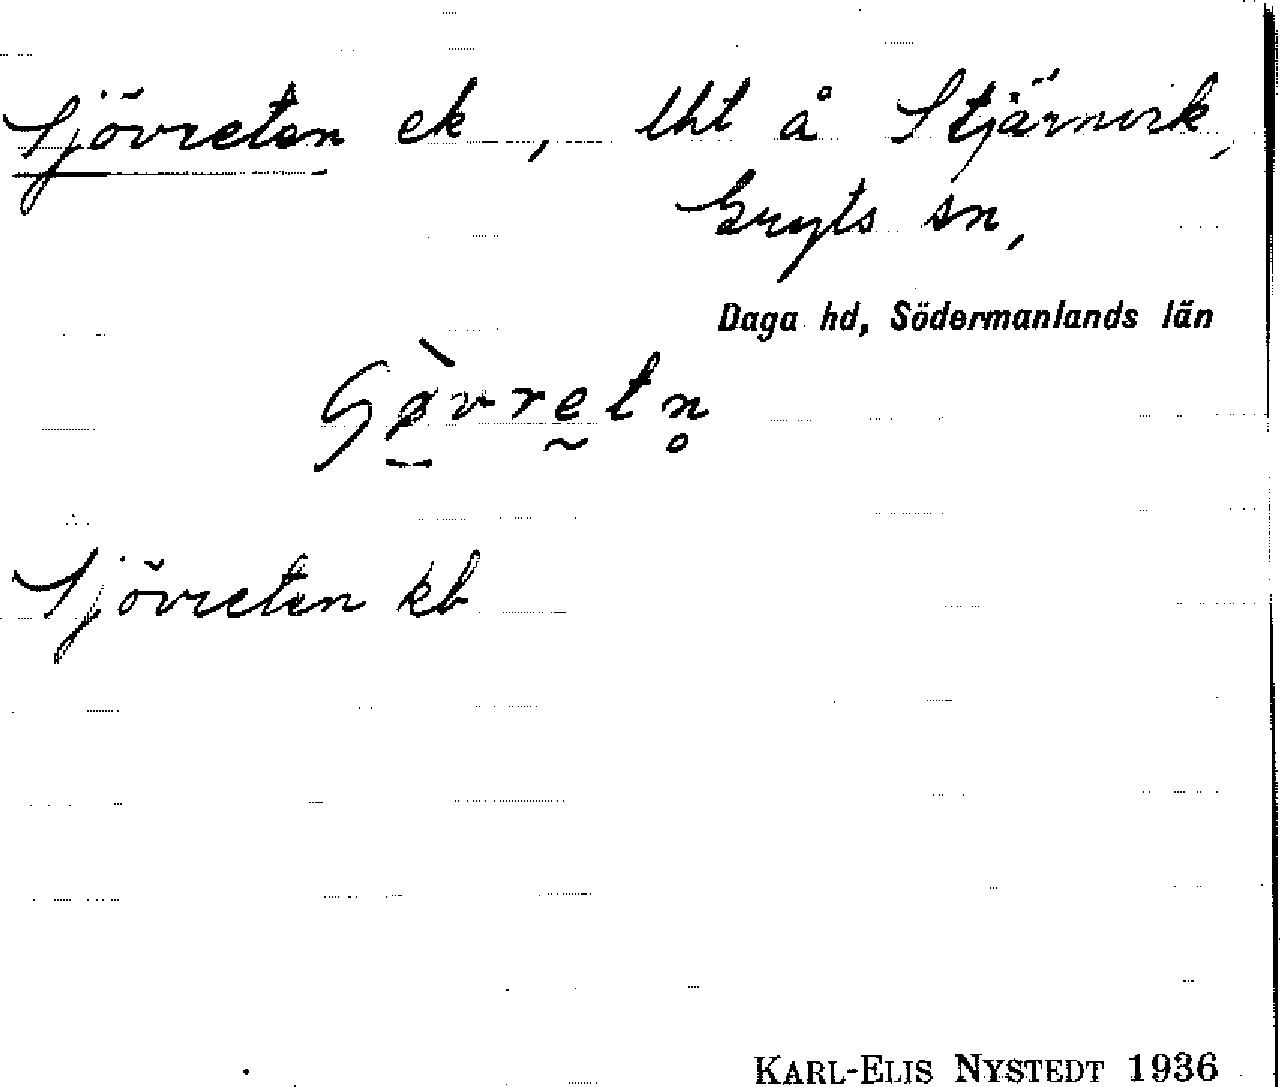 Sjövreten ek, tht å Stjärnvik,
Gryts sn,
Daga hd, Södermanlands län
Sjövreten kb
KARL-ELIS NYSTEDT 1936